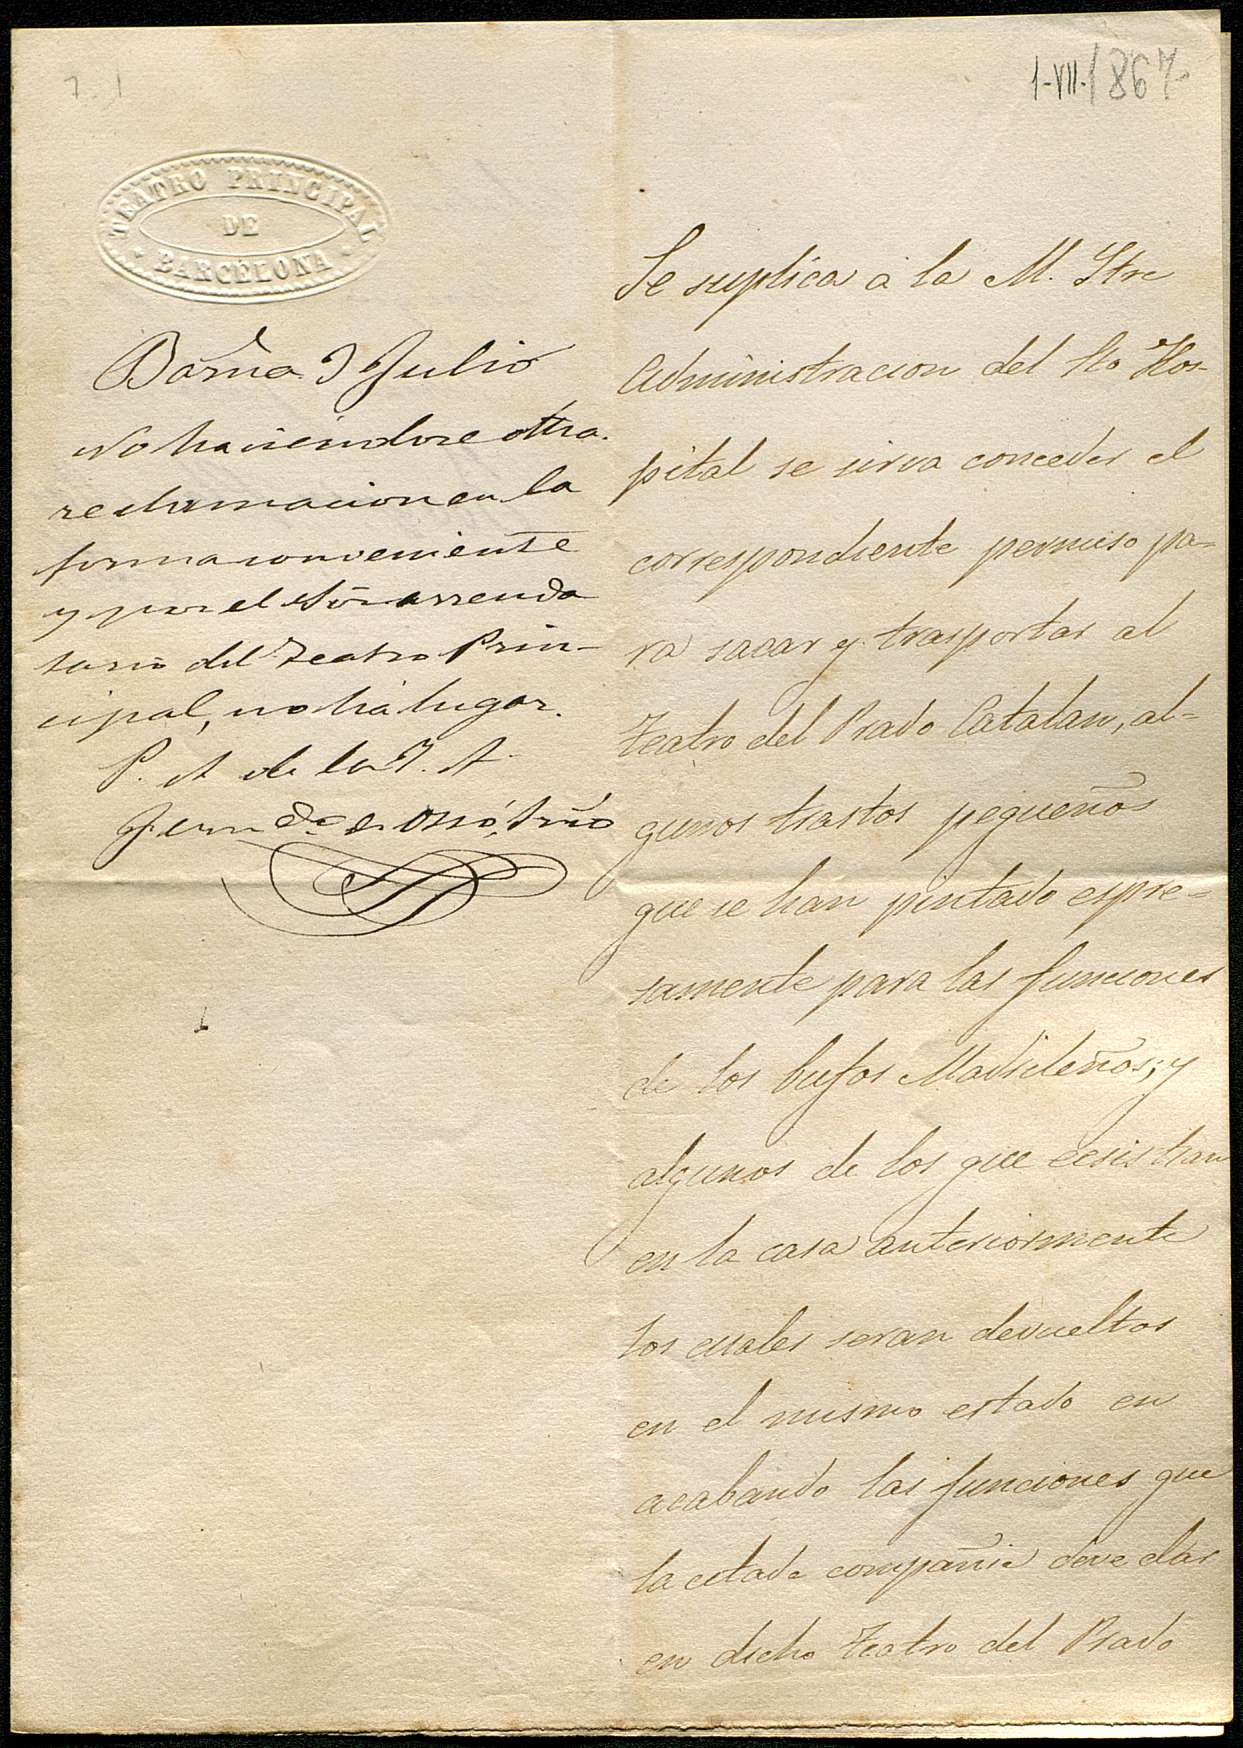 1-VII-1867.
TEATRO PRINCIPAL
DE
BARCELONA
Barna 9 Julio
No haciendose otra
reclamacion en la
forma conveniente
y por el Sôr arrenda
tario del Teatro Prin-
cipal, no há lugar.
P. A de la I. A.
Se suplica á la M. Iltre
Administracion del Sto Hos-
pital se sirva conceder el
correspondiente permiso pa-
ra sacar y trasportar al
Teatro del Prado Catalan, al-
gunos trastos pequeños
que se han pintado espre-
samente para las funciones
de los bufos Madrileños; y
algunos de los que ecsistian
en la casa anteriormente
los cuales seran devueltos
en el mismo estado en
acabando las funciones que
la citada compañia deve dar
en dicho Teatro del Prado